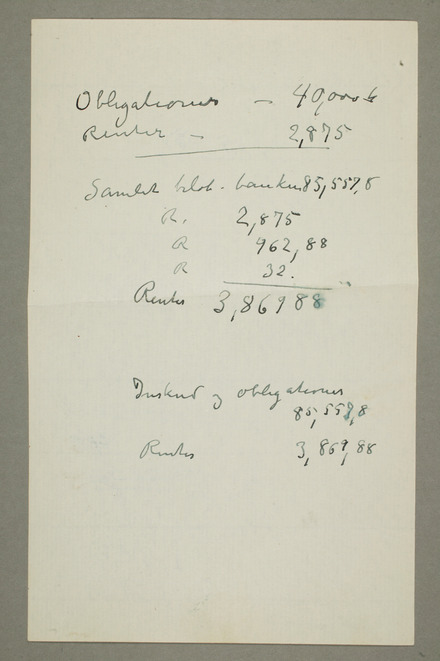 Obligationer – 40,000 kr
Renter – 2,875
Samlet beløb. banken 85,557,8
R. 2,875
R 962,88
R 32.
Renter 3,86988
Inskud og obligationer
85,557,8
Renter 3,869,88